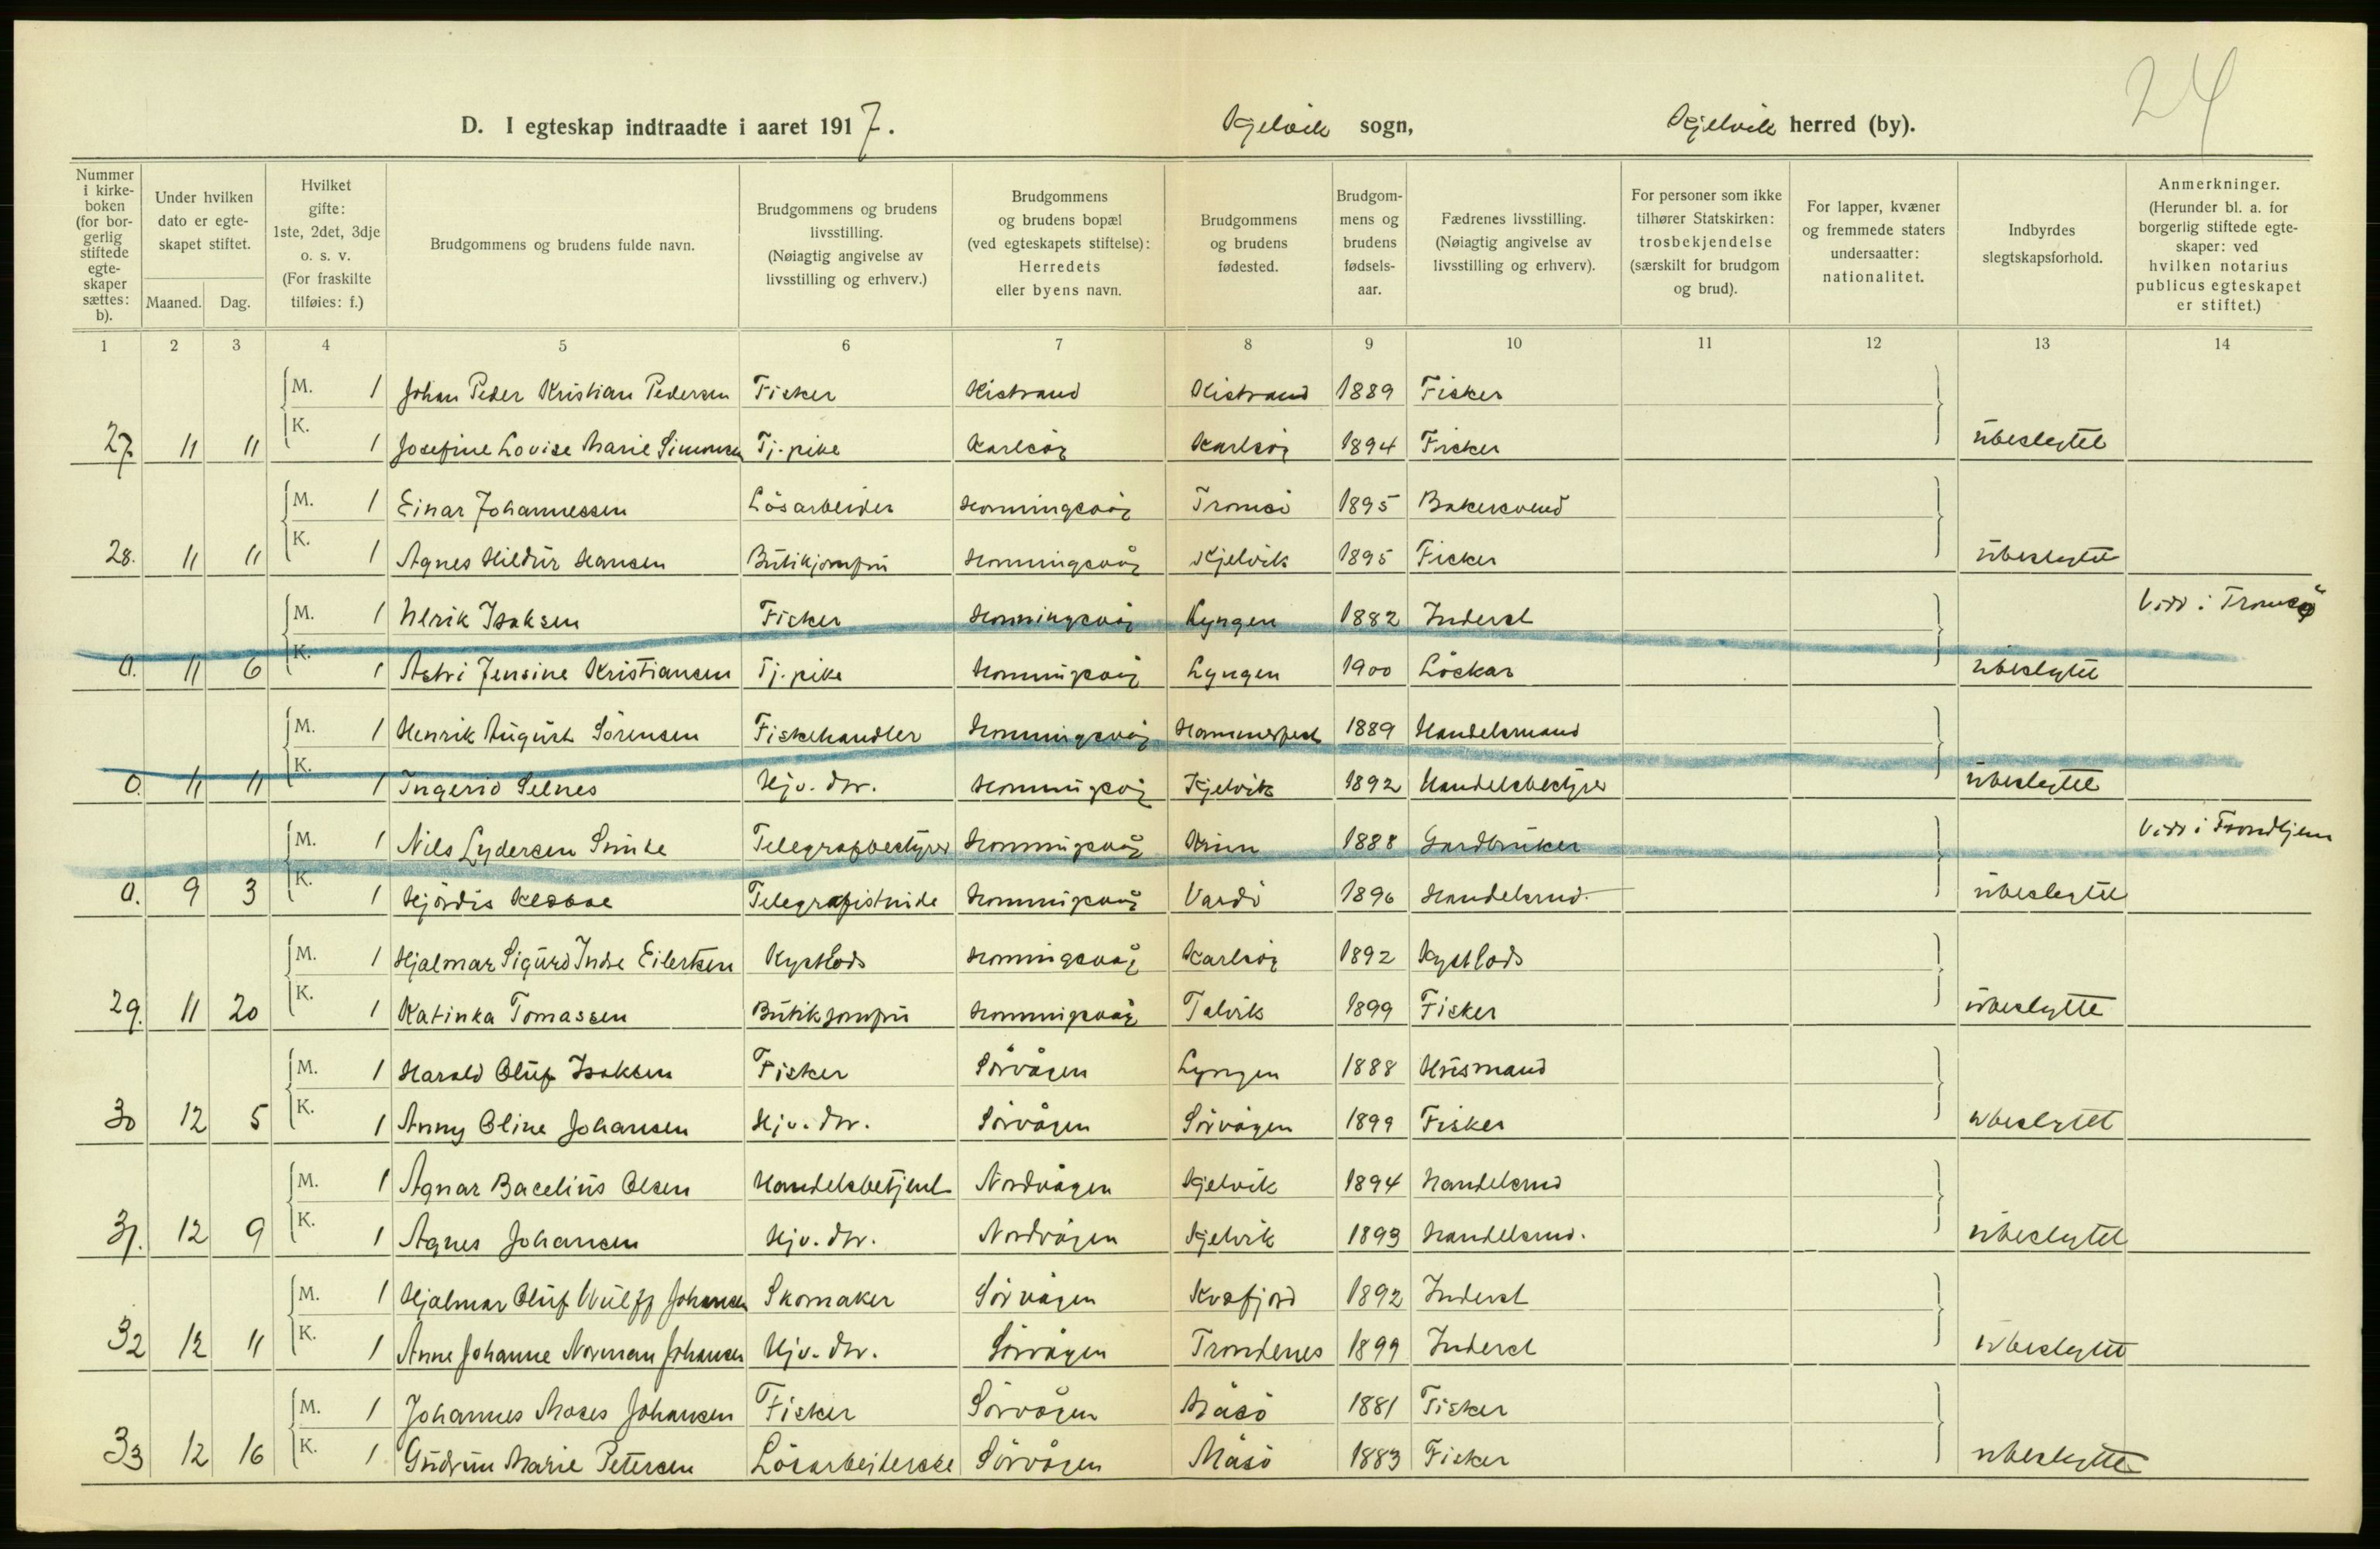 24
D. I egteskap indtraadte i aaret 1917. Kjelvik sogn, Kjelvik herred (by).
Nummer i kirkeboken (for borgerlig stiftede egteskaper sættes: b).
Under hvilken dato er egteskapet stiftet.
Maaned. Dag.
Hvilket gifte: 1ste, 2det, 3dje o. s. v. (For fraskilte tilføies: f.)
Brudgommens og brudens fulde navn.
Brudgommens og brudens livsstilling. (Nøiagtig angivelse av livsstilling og erhverv.)
Brudgommens og brudens bopæl (ved egteskapets stiftelse): Herredets eller byens navn.
Brudgommens og brudens fødested.
Brudgommens og brudens fødselsaar.
Fædrenes livsstilling. (Nøiagtig angivelse av livsstilling og erhverv).
For personer som ikke tilhører Statskirken: trosbekjendelse (særskilt for brudgom og brud).
For lapper, kvæner og fremmede staters undersaatter: nationalitet.
Indbyrdes slegtskapsforhold.
Anmerkninger. (Herunder bl. a. for borgerlig stiftede egteskaper: ved hvilken notarius publicus egteskapet er stiftet.)
1 2 3 4 5 6 7 8 9 10 11 12 13 14
M. 1 Johan Peder Kristian Pedersen Fisker Kistrand Kistrand 1889 Fisker
27. 11 11 K. 1 Josefine Lovise Marie Simonsen Tj. pike Karlsöy Karlsöy 1894 Fisker ubeslegtet
M. 1 Einar Johannessen Lösarbeider Honningsvåg Tromsö 1895 Bakersvend
28. 11 11 K. 1 Agnes Hildur Hansen Butikjomfru Honningsvåg Kjelvik 1895 Fisker ubeslegtet
M. 1 Ulrik Isaksen Fisker Honningsvåg Lyngen 1882 Inderst Viet i Tromsö
0. 11 6 K. 1 Astri Jensine Kristiansen Tj. pike Honningsvåg Lyngen 1900 Löskar ubeslegtet
M. 1 Henrik August Sörensen Fiskehandler Honningsvåg Hammerfest 1889 Handelsmand
0. 11 11 K. 1 Ingerid Selnes Hjv. dtr. Honningsvåg Kjelvik 1892 Handelsbestyrer ubeslegtet
M. 1 Nils Lydersen Telegrafbestyrer Honningsvåg Kinn 1888 Gardbruker Viet i Trondhjem
0. 9 3 K. 1 Hjördis Klæboe Telegrafistinde Honningsvåg Vardö 1896 Handelsmd. ubeslegtet
M. 1 Hjalmar Sigurd Indre Eilertsen Kystlods Honningsvåg Karlsöy 1892 Kystlods
29. 11 20 K. 1 Katinka Tomassen Butikjomfru Honningsvåg Talvik 1899 Fisker ubeslegtet
M. 1 Harald Oluf Isaksen Fisker Sörvågen Lyngen 1888 Husmand
30 12 5 K. 1 Anny Oline Johansen Hjv. dtr. Sörvågen Sörvågen 1899 Fisker ubeslegtet
M. 1 Agnar Bacelius Olsen Handelsbetjent Nordvågen Kjelvik 1894 Handelsmd
31. 12 9 K. 1 Agnes Johansen Hjv. dtr. Nordvågen Kjelvik 1893 Handelsmd. ubeslegtet
M. 1 Hjalmar Oluf Wulff Johansen Skomaker Sörvågen Kvæfjord 1892 Inderst
32 12 11 K. 1 Anne Johanne Norman Johansen Hjv. dtr. Sörvågen Trondenes 1899 Inderst ubeslegtet
M. 1 Johannes Moses Johansen Fisker Sörvågen Måsö 1881 Fisker
33 12 16 K. 1 Gudrun Marie Petersen Lösarbeiderske Sörvågen Måsö 1883 Fisker ubeslegtet